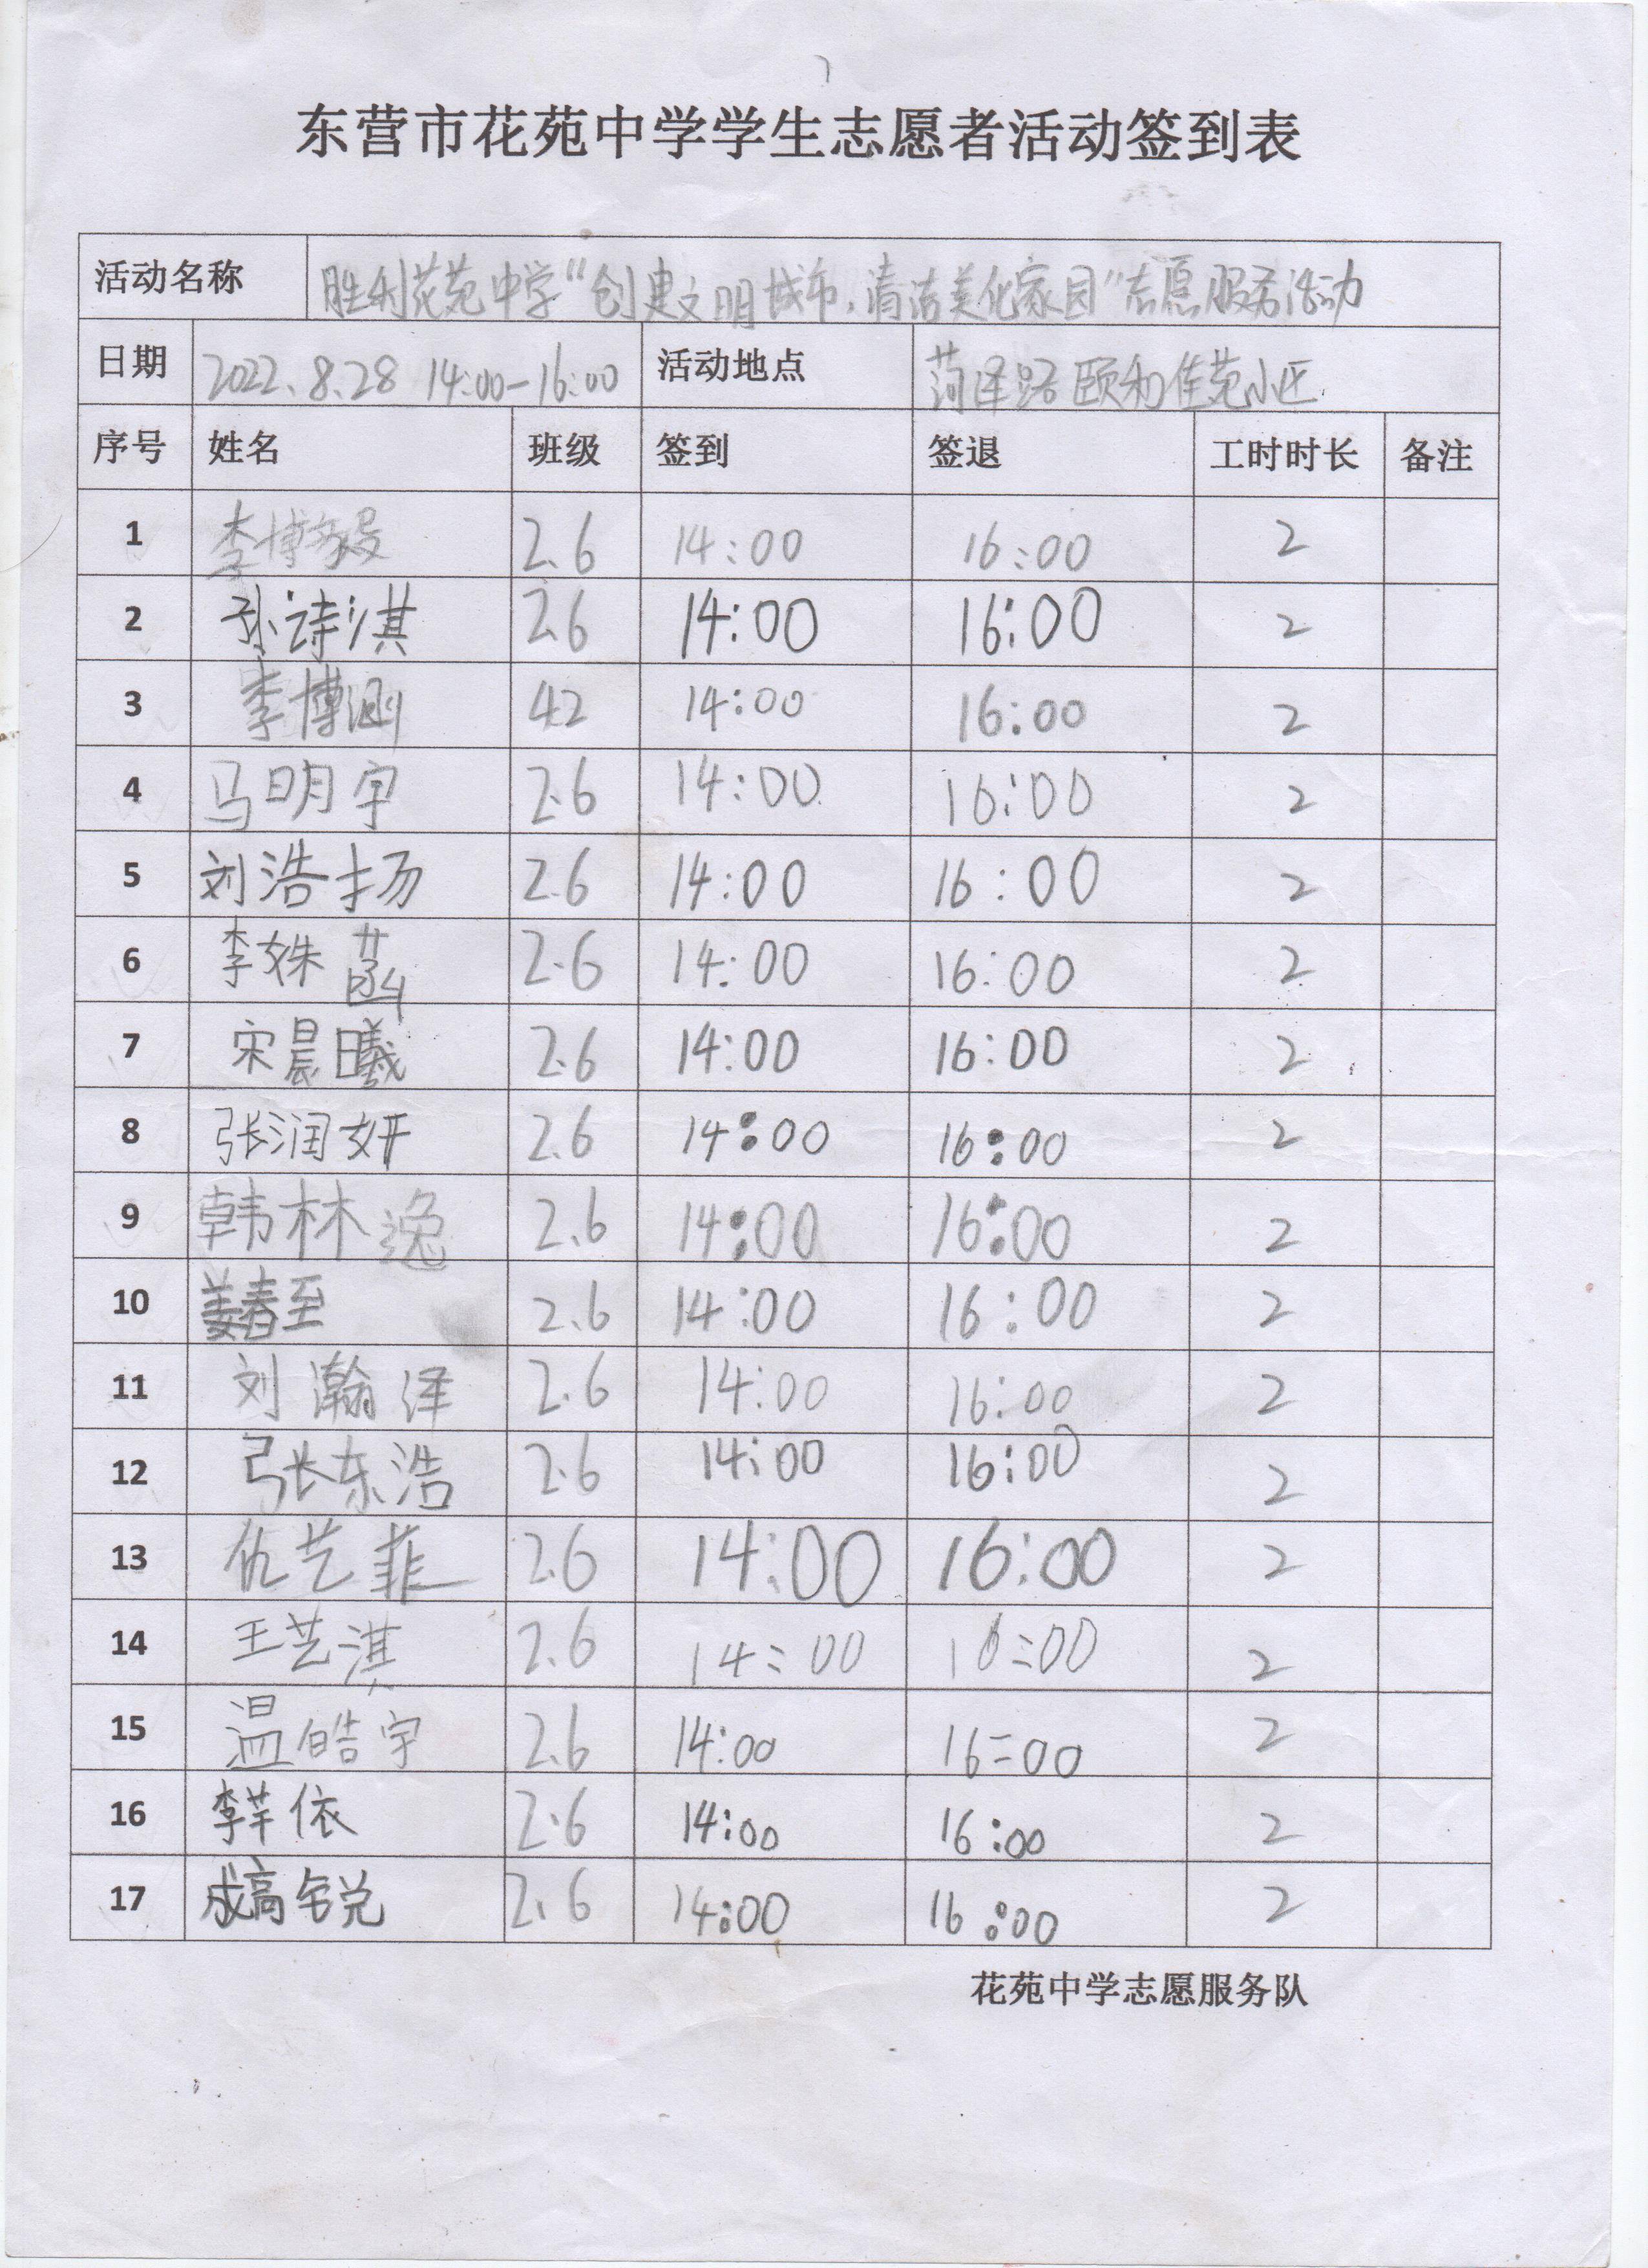 东营市花苑中学学生志愿者活动签到表
活动名称 胜利花苑中学“创建文明城市，清洁美化家园”志愿服务活动
日期 2022.8.28 14:00-16:00 活动地点 菏泽路颐和佳苑小区
序号 姓名 班级 签到 签退 工时时长 备注
1 李博 2.6 14:00 16:00 2
2 孙诗淇 2.6 14:00 16:00 2
3 李博涵 42 14:00 16:00 2
4 马明宇 2.6 14:00 16:00 2
5 刘浩扬 2.6 14:00 16:00 2
6 李姝菡 2.6 14:00 16:00 2
7 宋晨曦 2.6 14:00 16:00 2
8 张润妍 2.6 14:00 16:00 2
9 韩林逸 2.6 14:00 16:00 2
10 姜春至 2.6 14:00 16:00 2
11 刘瀚泽 2.6 14:00 16:00 2
12 张东浩 2.6 14:00 16:00 2
13 仇艺菲 2.6 14:00 16:00 2
14 王艺淇 2.6 14:00 16:00 2
15 温皓宇 2.6 14:00 16:00 2
16 李芊依 2.6 14:00 16:00 2
17 成高锐 2.6 14:00 16:00 2
花苑中学志愿服务队